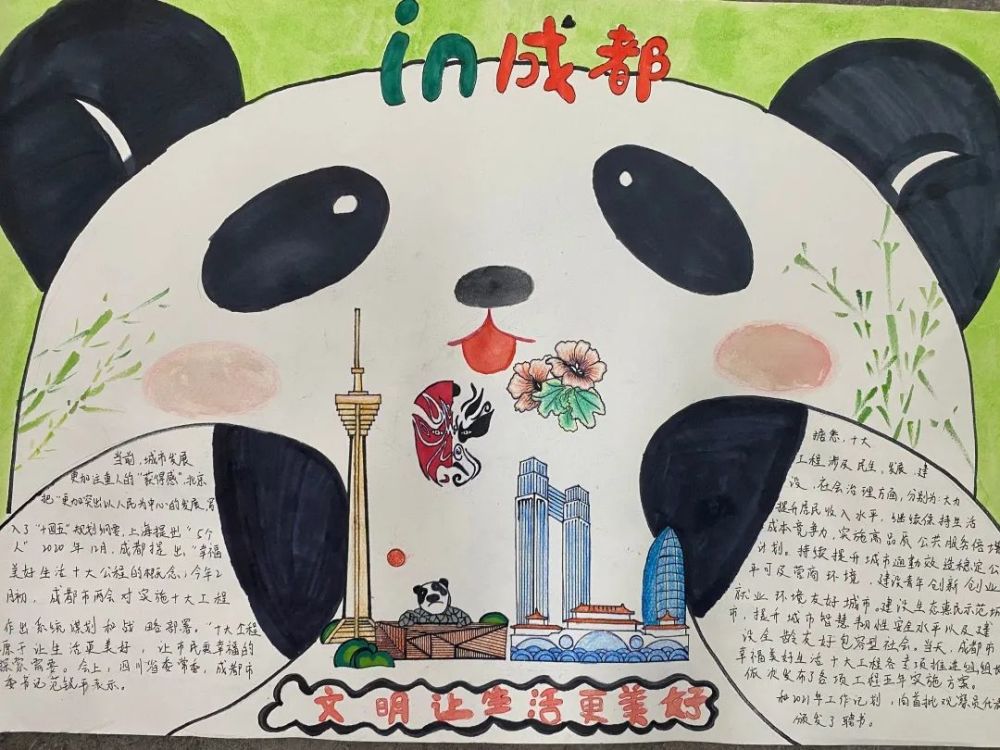 in成都
当前，城市发展
更加注重人的“获得感”，北京
把“更加突出以人民为中心”的发展，写
入了“十四五”规划纲要，上海提出“5个
人” 2020年12月，成都提出，“幸福
美好生活十大公程的概念，今年2
月初，成都市两会对实施十大工程
作出系统谋划和战略部署。“十大工程
源于让生活更美好，让市民更幸福的
探索需要。会上，四川省委常委，成都市
委书记范锐平表示。
据悉，十大
工程涉及民生，发展，建
设，社会治理方面，分别为：大力
提升居民收入水平，继续保持生活
成本竞争力，实施高品质公共服务倍增
计划。持续提升城市通勤效造稳定公
平可及营商环境，建设青年创新创业
就业环境友好城市。建设生态惠民示范城
市，提升城市智慧韧性安全水平以及建
设全龄友好包容型社会。当天，成都市
幸福美好生活十大工程各专项推进组组长
依次发布了各项工程五年实施方案。
和2021年工作计划，向首批观察员代表
颁发了聘书。
文明让生活更美好